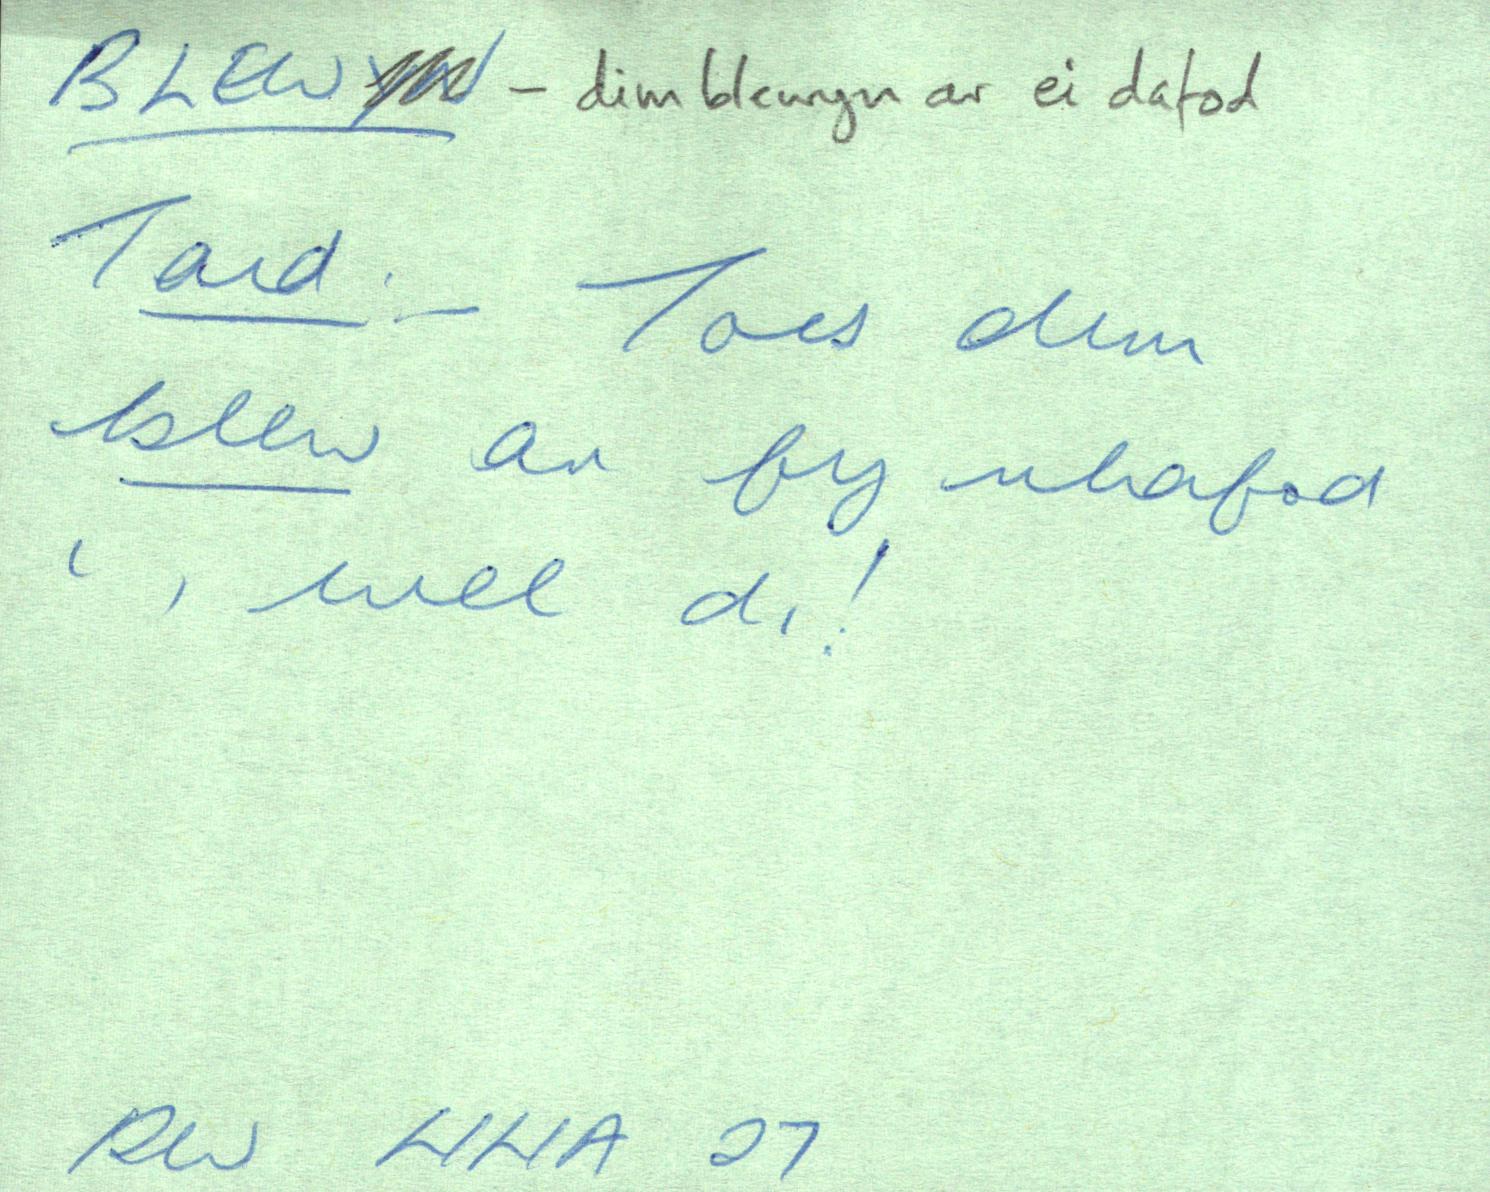 BLEW - dim blewyn ar ei dafod
Taid. - Toes dim
blew ar fy nhafod
i, wel di!
RW LLLIA 27